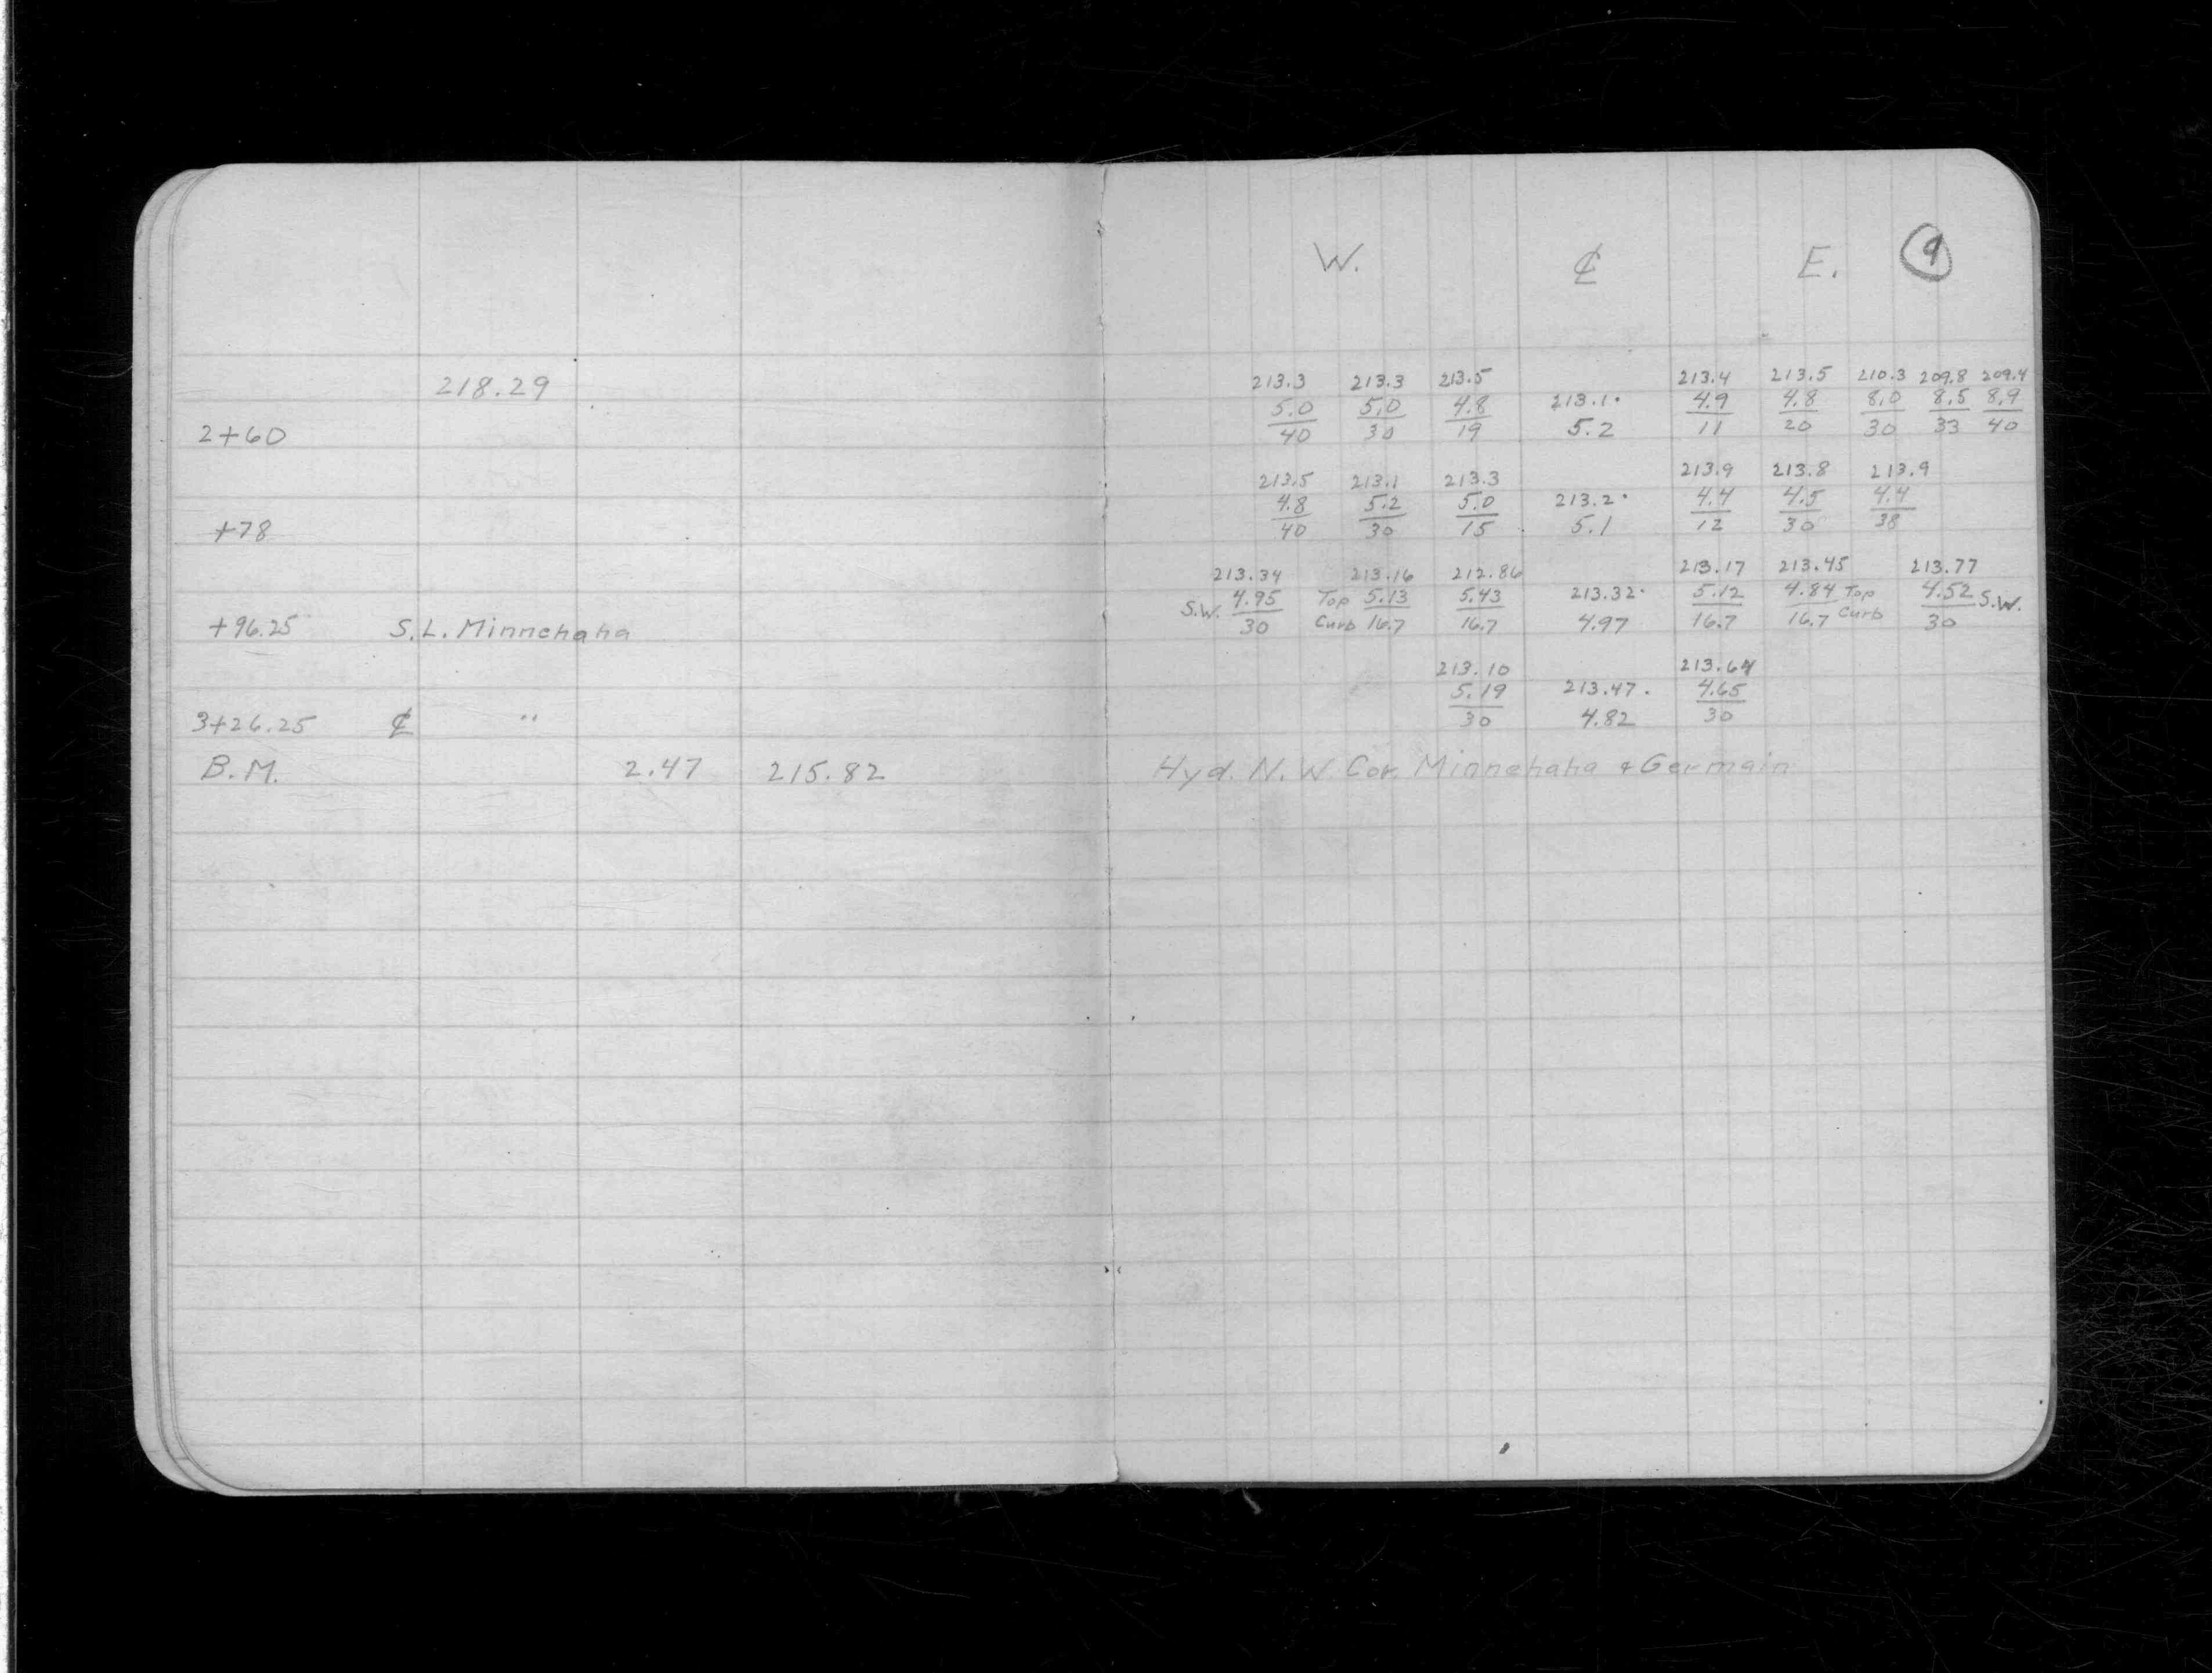 W. ℄ E. 9
218.29 213.3 213.3 213.5 213.4 213.5 210.3 209.8 209.4
5.0 5.0 4.8 213.1. 4.9 4.8 8.0 8.5 8.9
2+60 40 30 19 5.2 11 20 30 33 40
213.5 213.1 213.3 213.9 213.8 213.9
4.8 5.2 5.0 213.2. 4.4 4.5 4.4
+78 40 30 15 5.1 12 30 38
213.34 213.16 212.86 213.17 213.45 213.77
S.W. 4.95 Top 5.13 5.43 213.32. 5.12 4.84 Top 4.52 S.W.
+96.25 S.L. Minnehaha 30 Curb 16.7 16.7 4.97 16.7 16.7 Curb 30
213.10 213.64
5.19 213.47. 4.65
3+26.25 ℄ " 30 4.82 30
B.M. 2.47 215.82 Hyd. N.W. Cor. Minnehaha & Germain